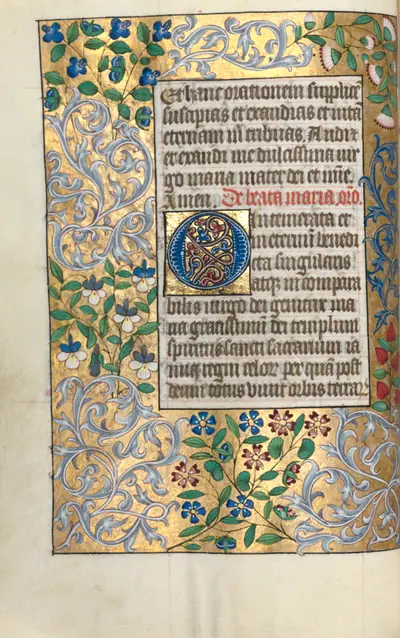 Et hanc orationem supplice
suscipias et exaudias et vitā
eternam m tribuas. Audi
et exaudi me dulcissima vir
go maria mater dei et mīe.
Amen. De beata maria. orō.
O Intemerata et
in eternū bened
cta singularis
atqȝ in compara
bilis virgo dei genitrix ma
ria gratissimū dei templum
spiritus sancti sacrarium ia
nua regni celoꝝ per quā post
deum totus vivit orbis terraꝝ